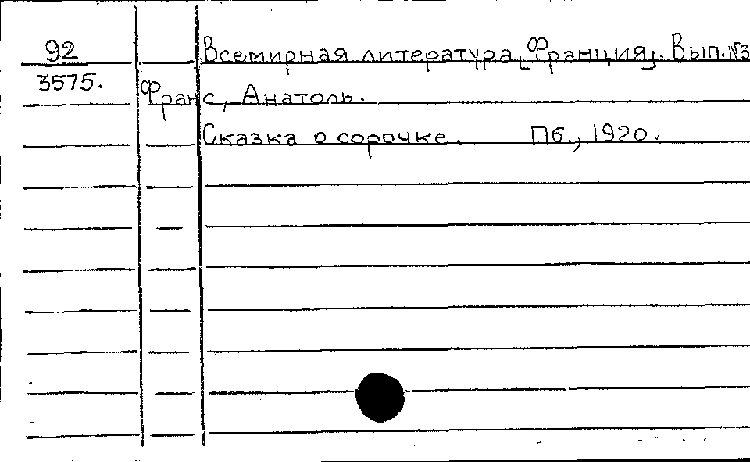 92
3575.
Всемирная литература [Франция]. Вып. №3
Франс, Анатоль.
Сказка о сорочке. Пб., 1920.